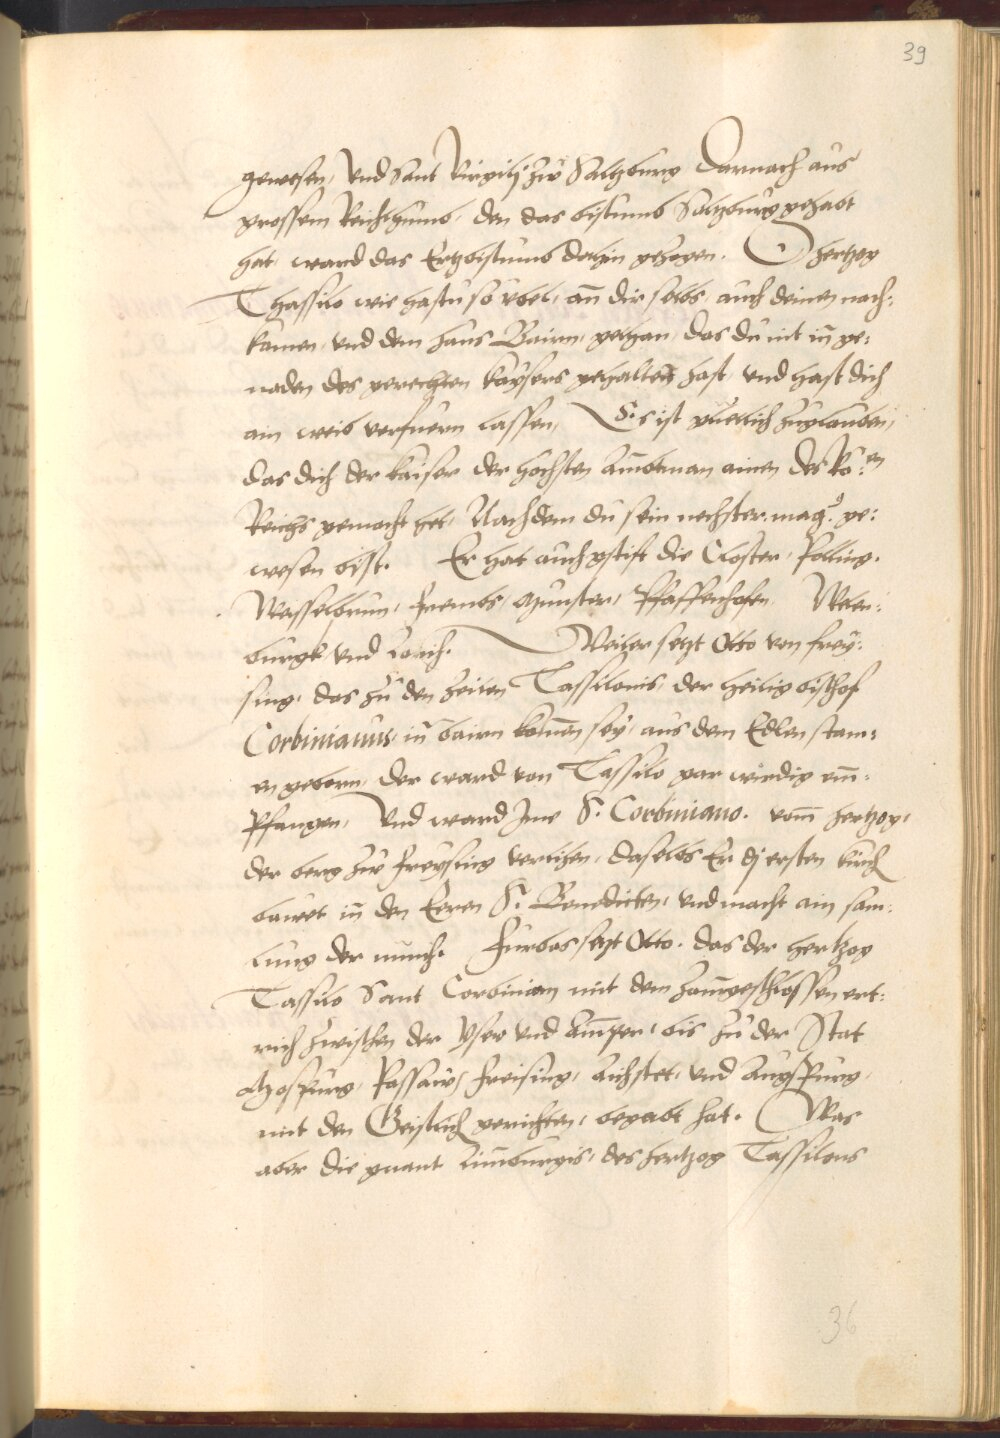 39
gewesen, Und Sant Virgilj zw Saltzburg Darnach aus
grossem Reichthumb, den das bistumb Saltzburg gehabt
hat, ward das Ertzbistumb dahin gezogen. O hertzog
Thassilo wie hastu so vbel, an dir selbs, auch deinen nach:
kamen, und dem haus Bairn, gethan, das du nit in ge:
naden des gerechten kaysers gehalten hast, und hast dich
ain weib verfuern lassen, Es ist guetlich zuglauben,
das dich der kaiser der hochsten ambtman ainen des Rö:en
Reichs gemacht het, Nachdem du sein nechster mag ge:
wesen bist. Er hat auch gstift die Closter, Polling.
Wesselbrun, Krembs, Munster, Pfaffenhofen, Welen:
burgk, und Lorich. Weiter setzt Otto von frey:
sing, das zu den Zeiten Tassilonis, der heilig bischof
Corbinianus, in bairn komen sey, aus dem Edlen stam:
en geborn, der ward von Tassilo gar wirdig em:
pfangen, Und ward Ime S. Corbiniano. vom hertzog,
der berg zw freysing verlihen, daselbs Er dj ersten kirch
bawet in den Eeren S. Benedicten, und macht ain sam:
lung der munch. Furbas setzt Otto. das der hertzog
Tassilo Sant Corbinian mit dem zamgeschlossen ert:
rich zwischen der Yser und Amper, bis zu der Stat
Mospurg, Passaw, freising, Aichstet, und Augspurg,
mit den Geistlich gerichten, begabt hat. Was
aber die gnant Limburgis, des hertzog Tassilons
36